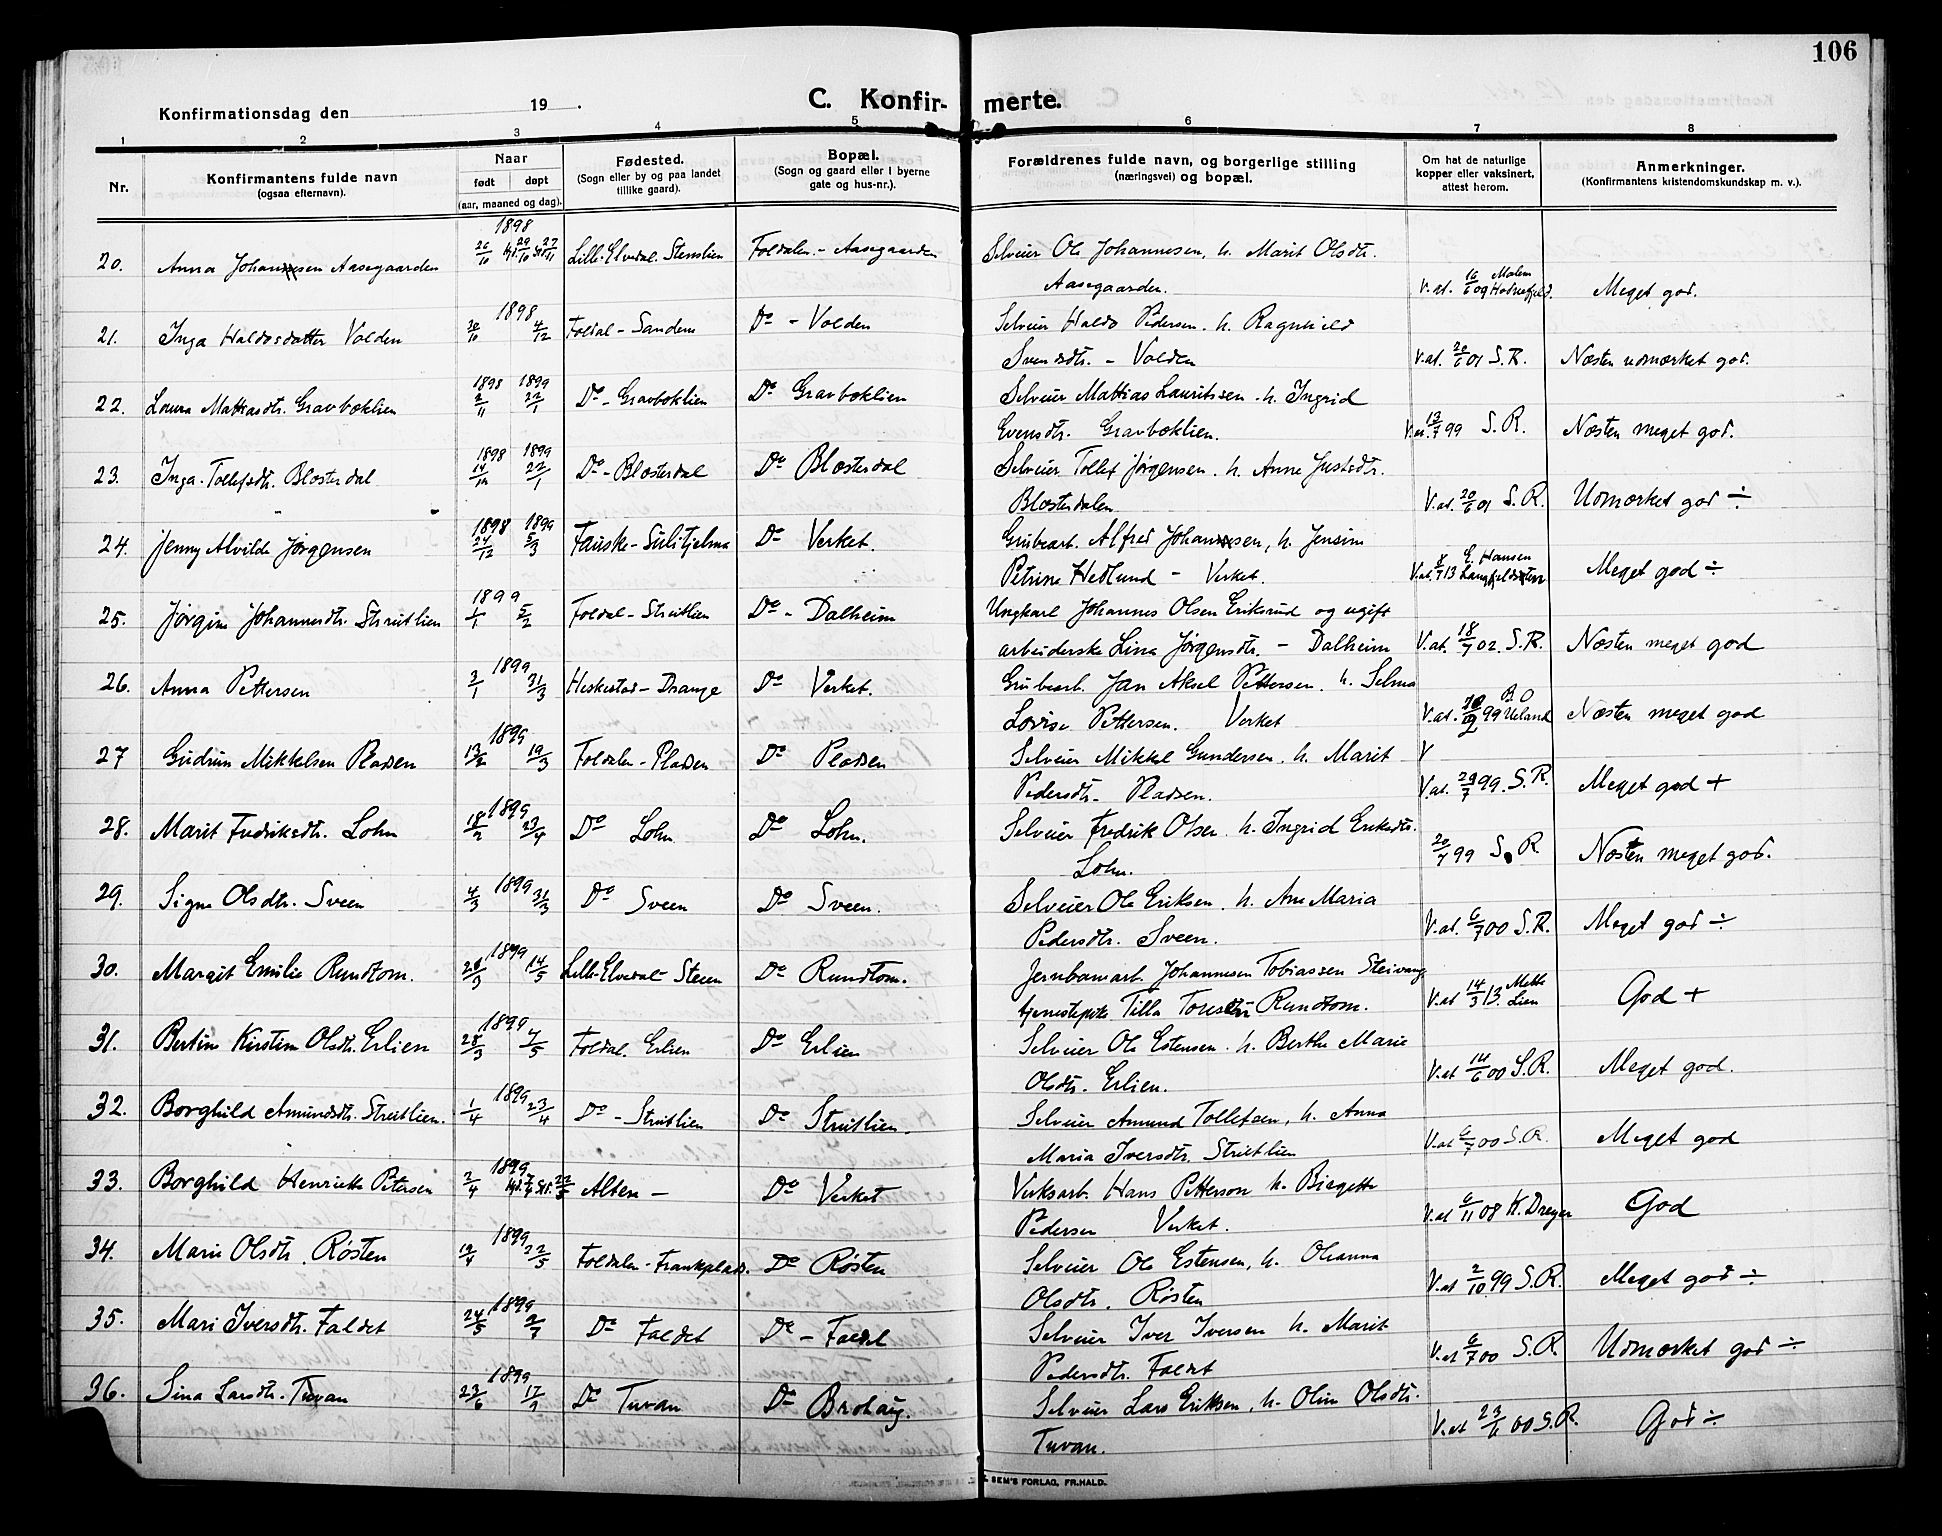 106
C. Konfirmerte.
Konfirmationsdag den 19 .
1 2 3 4 5 6 7 8
Nr.
Konfirmantens fulde navn
(ogsaa efternavn).
Naar
født døpt
(aar, maaned og dag).
Fødested.
(Sogn eller by og paa landet
tillike gaard).
Bopæl.
(Sogn og gaard eller i byerne
gate og hus-nr.).
Forældrenes fulde navn, og borgerlige stilling
(næringsvei) og bopæl.
Om hat de naturlige
kopper eller vaksinert,
attest herom.
Anmerkninger.
(Konfirmantens kristendomskundskap m. v.).
20. Anna Johannesen Aasegaarden 1898 26/10 29/10 27/11 Lille-Elvedal. Stenslien Foldalen - Aasegaarden Selveier Ole Johannesen, h. Marit Olsdtr.
Aasegaarden. V. at. 16/6 09 Meget god.
21. Inga Haldosdatter Volden 1898 20/10 4/12 Foldal - Sandem Do - Volden Selveier Haldo Pedersen. h. Ragnhild
Svensdtr. - Volden V. at. 20/6 01 S.R. Næsten udmærket god.
22. Laura Mattiasdtr. Gravbæklien 1898 2/11 1899 22/1 Do - Gravbæklien Do Gravbæklien Selveier Mattias Lauritssen. h. Ingrid
Evensdtr. Gravbæklien. V. at. 13/7 99 S.R. Næsten meget god.
23. Inga Tollefsdtr. Blæsterdal 1898 14/12 1899 22/1 Do - Blæsterdal Do Blæsterdal Selveier Tollef Jørgensen. h. Anne Justsdtr.
Blæsterdalen V. at. 20/6 01 S.R. Udmærket god ÷
24. Jenny Alvilde Jørgensen 1898 24/12 1899 5/3 Fauske - Sulitjelma Do Verket. Grubearb. Alfred Johannsen, h. Jensine
Petrine Hedlund - Verket. V. at. 8/7 13 E. Hansen Meget god ÷
25. Jørgine Johannesdtr. Streitlien 1899 1/1 5/2 Foldal - Streitlien Do - Dalheim Ungkarl Johannes Olsen Eriksrud og ugift
arbeiderske Lina Jørgensdtr. - Dalheim V. at. 18/7 02. S.R. Næsten meget god
26. Anna Pettersen 1899 3/1 31/3 Heskestad - Drange Do Verket. Grubearb. Jan Aksel Pettersen. h. Selma
Lovise Pettersen. Verket V. at. 99 B O Ueland Næsten meget god
27 Gudrun Mikkelsen Pladsen 1899 13/2 19/3 Foldalen - Pladsen Do Pladsen Selveier Mikkel Gundersen. h. Marit
Pedersdtr. Pladsen. V. at. 29/7 99. S.R. Meget god +
28. Marit Fredriksdtr. Lohn 1899 18/2 23/4 Do Lohn Do Lohn. Selveier Fredrik Olsen. h. Ingrid Eriksdtr.
Lohn. 20/7 99 S.R. Næsten meget god.
29. Signe Olsdtr. Sveen 1899 4/3 31/3 Do Sveen Do Sveen. Selveier Ole Eriksen. h. Ane Maria
Pedersdtr. Sveen. V. at. 6/7 00 S.R. Meget god ÷
30. Margit Emilie Rundtom. 1899 28/3 14/5 Lille-Elvedal - Steien Do Rundtom. Jernbanearb. Johannesen Tobiassen Steivang
tjenestepike Tilla Rundtom. V. at 14/3 13 Mette Lien God +
31. Bertine Kirstine Olsdtr. Erlien 1899 28/3 7/5 Foldal. Erlien Do Erlien Selveier Ole Estensen. h. Berthe Marie
Olsdtr. Erlien. V. at 14/6 00 S.R. Meget god.
32. Borghild Amundsdtr. Streitlien. 1899 1/4 23/4 Do - Streitlien Do Streitlien. Selveier Amund Tollefsen, h. Anna
Maria Iversdtr. Streitlien V. at 6/7 00 S.R. Meget god
33. Borghild Henriette Petersen 1899 2/4 Alten - Do Verket Verksarb. Hans Petterson h. Birgette
Pedersen Verket. V. at 6/11 08 K. Dreyer God
34. Marie Olsdtr. Røsten 1899 12/4 22/5 Foldalen - Frankplads. Do Røsten Selveier Ole Estensen, h. Oleanna
Olsdtr. Røsten V. at 2/10 99 S.R. Meget god ÷
35. Mari Iversdtr. Faldet 1899 24/5 2/7 Do Faldet Do - Faldet Selveier Iver Iversen h. Marit
Pedersdtr. Faldet V. at 6/7 00 S.R. Udmærket god ÷
36. Sina Larsdtr. Tuvan 1899 23/6 17/9 Do Tuvan Do Brohaug. Selveier Lars Eriksen, h. Oline Olsdtr.
Tuvan. V. at 23/6 00 S.R. God ÷
SEM'S FORLAG, FR.HALD.